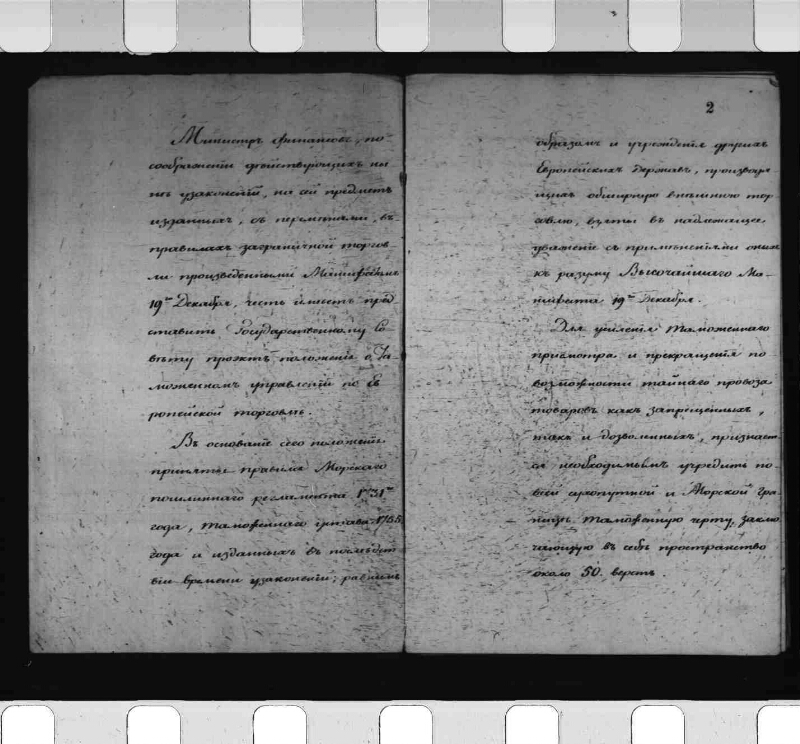 Министръ финансовъ, по
соображеніи дѣйствующихъ ны
нѣ узаконеній, на сей предметъ
изданныхъ, съ перемѣнами, въ
правилахъ заграничной торгов
ли произведенными Манифестомъ
19го Декабря, честь имѣетъ пред
ставить Государственному Со
вѣту проэктъ положенія о Та
моженномъ управленіи по Ев
ропейской торговлѣ.
Въ основаніе сего положенія
приняты правила Морскаго
пошлиннаго регламента 1731го
года, таможеннаго устава 1755
года и изданныхъ въ послѣдст
віи времени узаконеній; равнымъ
2
образомъ и учрежденія другихъ
Европейскихъ Державъ, производя
щихъ обширную внѣшнюю тор
говлю, взяты въ надлежащее
уваженіе съ примѣненіями оныхъ
къ разуму Высочайшаго Ма-
нифеста 19го Декабря.
Для усиленія таможеннаго
присмотра и прекращенія по
возможности тайнаго провоза
товаровъ какъ запрещенныхъ,
такъ и дозволенныхъ, признает
ся необходимымъ учредить по
всей сухопутной и Морской гра-
ницѣ таможенную черту, заклю
чающую въ себѣ пространство
около 50. верстъ.